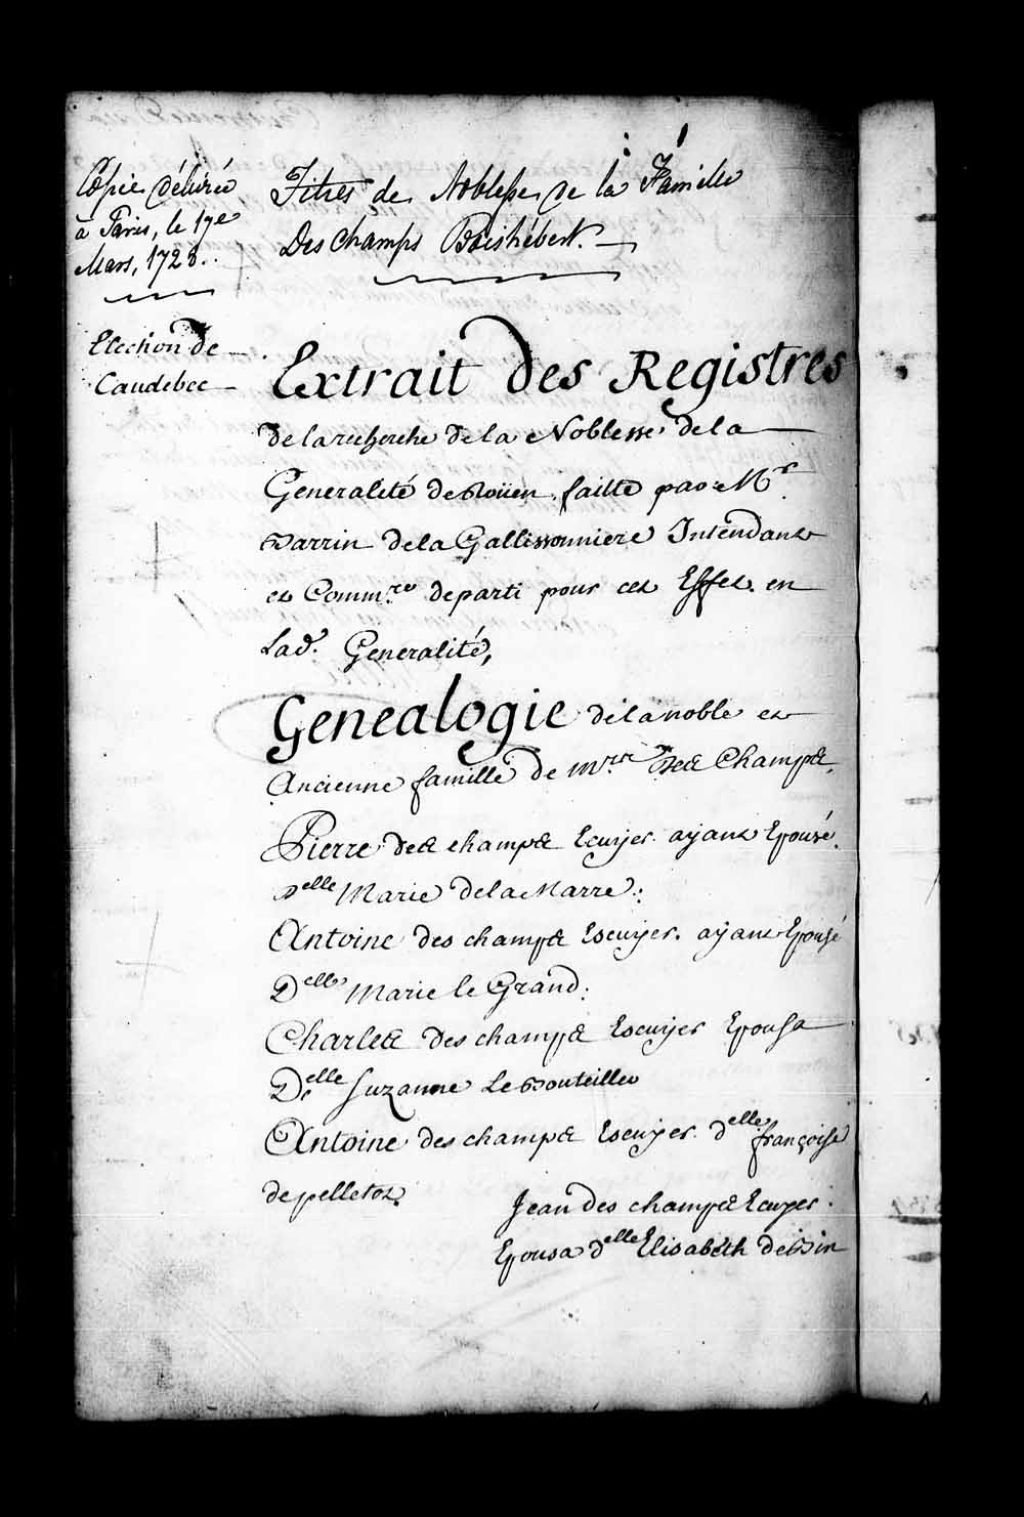 Copie délivrée
à Paris, le 17e
Mars, 1728.
Titres de Noblesse de la Famille
Des Champs Boishébert.
Election de
Caudebec
Extrait des Registres
de la recherche de la Noblesse de la
Generalité de Roüen, faitte par Mr.
Barrin de la Gallissonniere Intendant
et Commre. departi pour cet Effet en
Lad. Generalité,
Genealogie de la noble et
Ancienne famille de Mrs. Des Champs.
Pierre des champs Ecuyer ayant Epousé
Delle Marie de la Marre.
Antoine des champs Escuyer. ayant Epousé
Delle Marie le Grand.
Charles des champs Escuyer Epousa
Delle Suzanne Le Bouteiller
Antoine des champs Escuyer. delle françoise
de pelletot
Jean des champs Ecuyer
Epousa delle Elisabeth de Bin